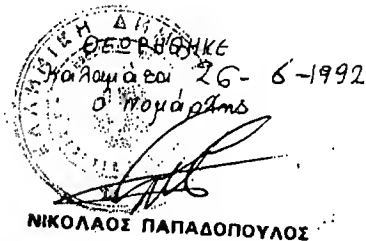 ΕΛΛΗΝΙΚΗ ΔΗ
ΘΕΩΡΗΘΗΚΕ
Καλαμάτα 26-6-1992
Ο Νομάρχης
ΝΙΚΟΛΑΟΣ ΠΑΠΑΔΟΠΟΥΛΟΣ